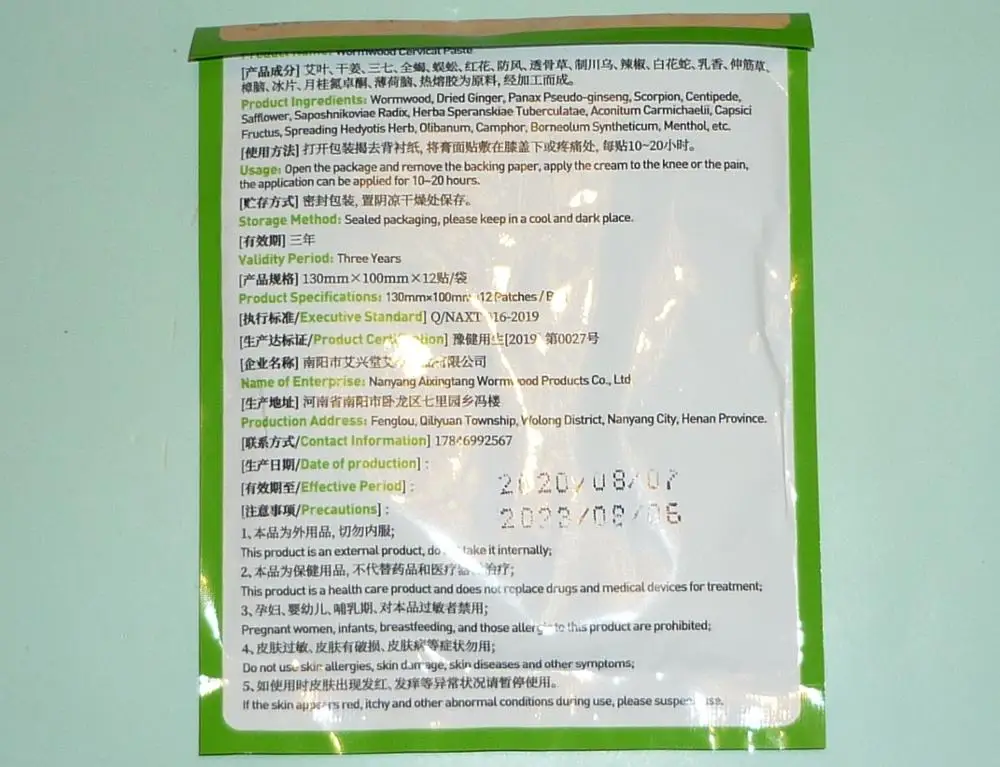 Wormwood Cervical Paste
[产品成分] 艾叶、干姜、三七、全蝎、蜈蚣、红花、防风、透骨草、制川乌、辣椒、白花蛇、乳香、伸筋草、
樟脑、冰片、月桂氮卓酮、薄荷脑、热熔胶为原料, 经加工而成。
Product Ingredients: Wormwood, Dried Ginger, Panax Pseudo-ginseng, Scorpion, Centipede,
Safflower, Saposhnikoviae Radix, Herba Speranskiae Tuberculatae, Aconitum Carmichaelii, Capsici
Fructus, Spreading Hedyotis Herb, Olibanum, Camphor, Borneolum Syntheticum, Menthol, etc.
[使用方法] 打开包装揭去背衬纸, 将膏面贴敷在膝盖下或疼痛处, 每贴10~20小时。
Usage: Open the package and remove the backing paper, apply the cream to the knee or the pain,
the application can be applied for 10~20 hours.
[贮存方式] 密封包装, 置阴凉干燥处保存。
Storage Method: Sealed packaging, please keep in a cool and dark place.
[有效期] 三年
Validity Period: Three Years
[产品规格] 130mm×100mm×12贴/袋
Product Specifications: 130mm×100mm 12 Patches / B
[执行标准/Executive Standard] Q/NAXT 16-2019
[生产达标证/Product Certification] 豫健用生[2019] 第0027号
[企业名称] 南阳市艾兴堂艾 有限公司
Name of Enterprise: Nanyang Aixingtang Wormwood Products Co., Ltd
[生产地址] 河南省南阳市卧龙区七里园乡冯楼
Production Address: Fenglou, Qiliyuan Township, Wolong District, Nanyang City, Henan Province.
[联系方式/Contact Information] 17846992567
[生产日期/Date of production] :
2020/08/07
[有效期至/Effective Period] :
2023/08/06
[注意事项/Precautions] :
1、本品为外用品, 切勿内服;
This product is an external product, do take it internally;
2、本品为保健用品, 不代替药品和医疗器 治疗;
This product is a health care product and does not replace drugs and medical devices for treatment;
3、孕妇、婴幼儿、哺乳期、对本品过敏者禁用;
Pregnant women, infants, breastfeeding, and those allergic to this product are prohibited;
4、皮肤过敏、皮肤有破损、皮肤病等症状勿用;
Do not use skin allergies, skin damage, skin diseases and other symptoms;
5、如使用时皮肤出现发红、发痒等异常状况请暂停使用。
If the skin appears red, itchy and other abnormal conditions during use, please suspend use.